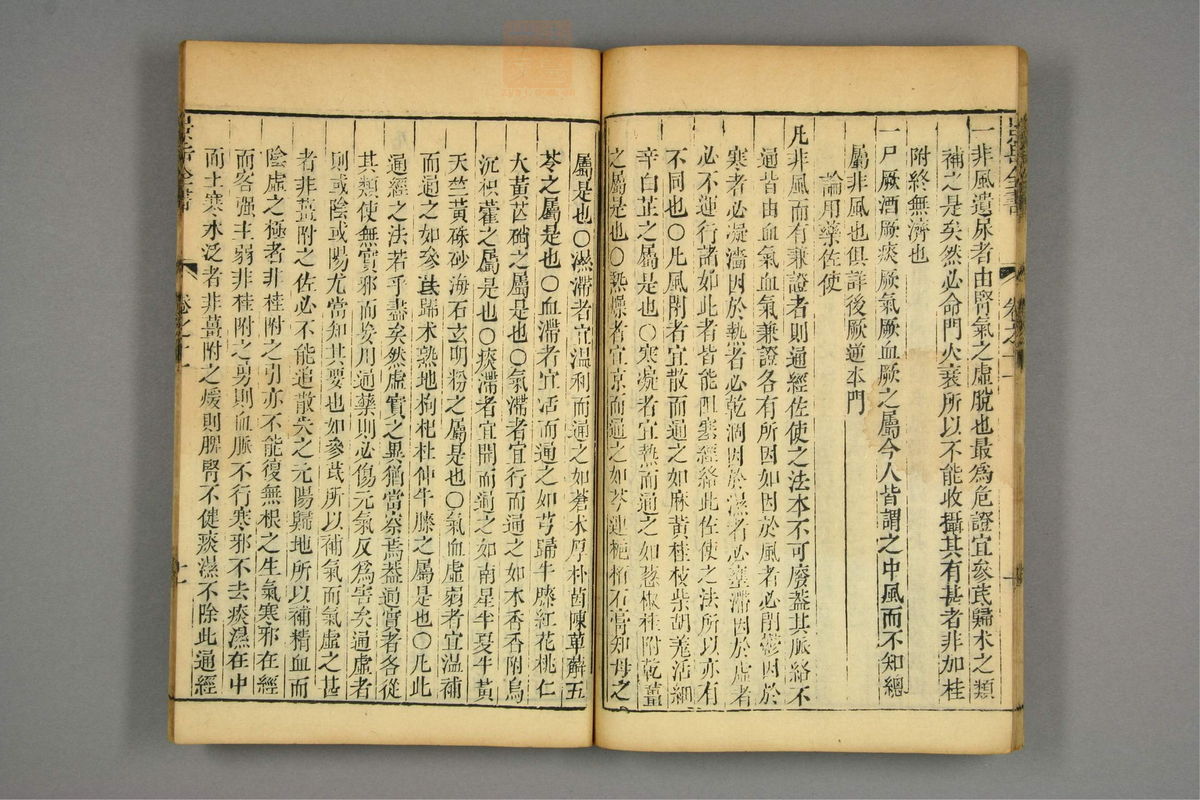 一非風遺尿者由腎氣之虛脫也最爲危證宜參芪歸术之類
補之是矣然必命門火衰所以不能收攝其有甚者非如桂
附終無濟也
一尸厥酒厥痰厥氣厥血厥之屬今人皆謂之中風而不知總
屬非風也俱詳後厥逆本門
論用藥佐使
凡非風而有兼證者則通經佐使之法本不可廢蓋其脈絡不
通皆由血氣血氣兼證各有所因如因於風者必閉鬱因於
寒者必凝濇因於熱者必乾涸因於濕者必壅滯因於虛者
必不運行諸如此者皆能阻塞經絡此佐使之法所以亦有
不同也〇凡風閉者宜散而通之如麻黃桂枝柴胡羌活細
辛白芷之屬是也〇寒凝者宜熱而通之如葱椒桂附乾薑
之屬是也〇熱燥者宜凉而通之如芩連梔栢石膏知母之
屬是也〇濕滯者宜温利而通之如蒼术厚朴茵陳萆薢五
苓之屬是也〇血滯者宜活而通之如芎歸牛膝紅花桃仁
大黃芒硝之屬是也〇氣滯者宜行而通之如木香香附烏
沉枳藿之屬是也〇痰滯者宜開而通之如南星半夏牛黃
天竺黃硃砂海石玄明粉之屬是也〇氣血虛弱者宜温補
而通之如參芪歸术熟地枸杞杜仲牛膝之屬是也〇凡此
通經之法若乎盡矣然虛實之異猶當察焉蓋通實者各從
其類使無實邪而妄用通藥則必傷元氣反爲害矣通虛者
則或陰或陽尤當知其要也如參芪所以補氣而氣虛之甚
者非薑附之佐必不能追散失之元陽歸地所以補精血而
陰虛之極者非桂附之引亦不能復無根之生氣寒邪在經
而客强主弱非桂附之勇則血脈不行寒邪不去痰濕在中
而土寒水泛者非薑附之煖則脾腎不健痰濕不除此通經
景岳全書
卷之十一
十
景岳全書
卷之十一
十一